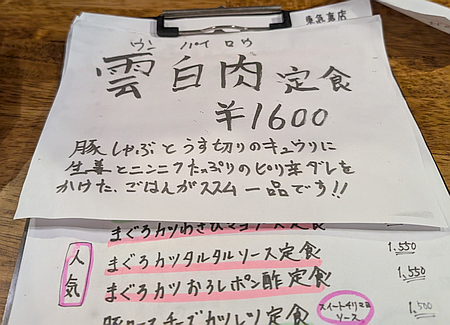 ウン パイ ロウ
雲白肉定食
¥1600
豚しゃぶとうす切りのキュウリに
生姜とニンニクたっぷりのピリ辛ダレを
かけた、ごはんがススム一品です!!
まぐろカツわさびマヨソース定食
人気
まぐろカツタルタルソース定食
1.550
まぐろカツおろしポン酢定食
1,550
チーズカツレツ定食
1,500
ソース